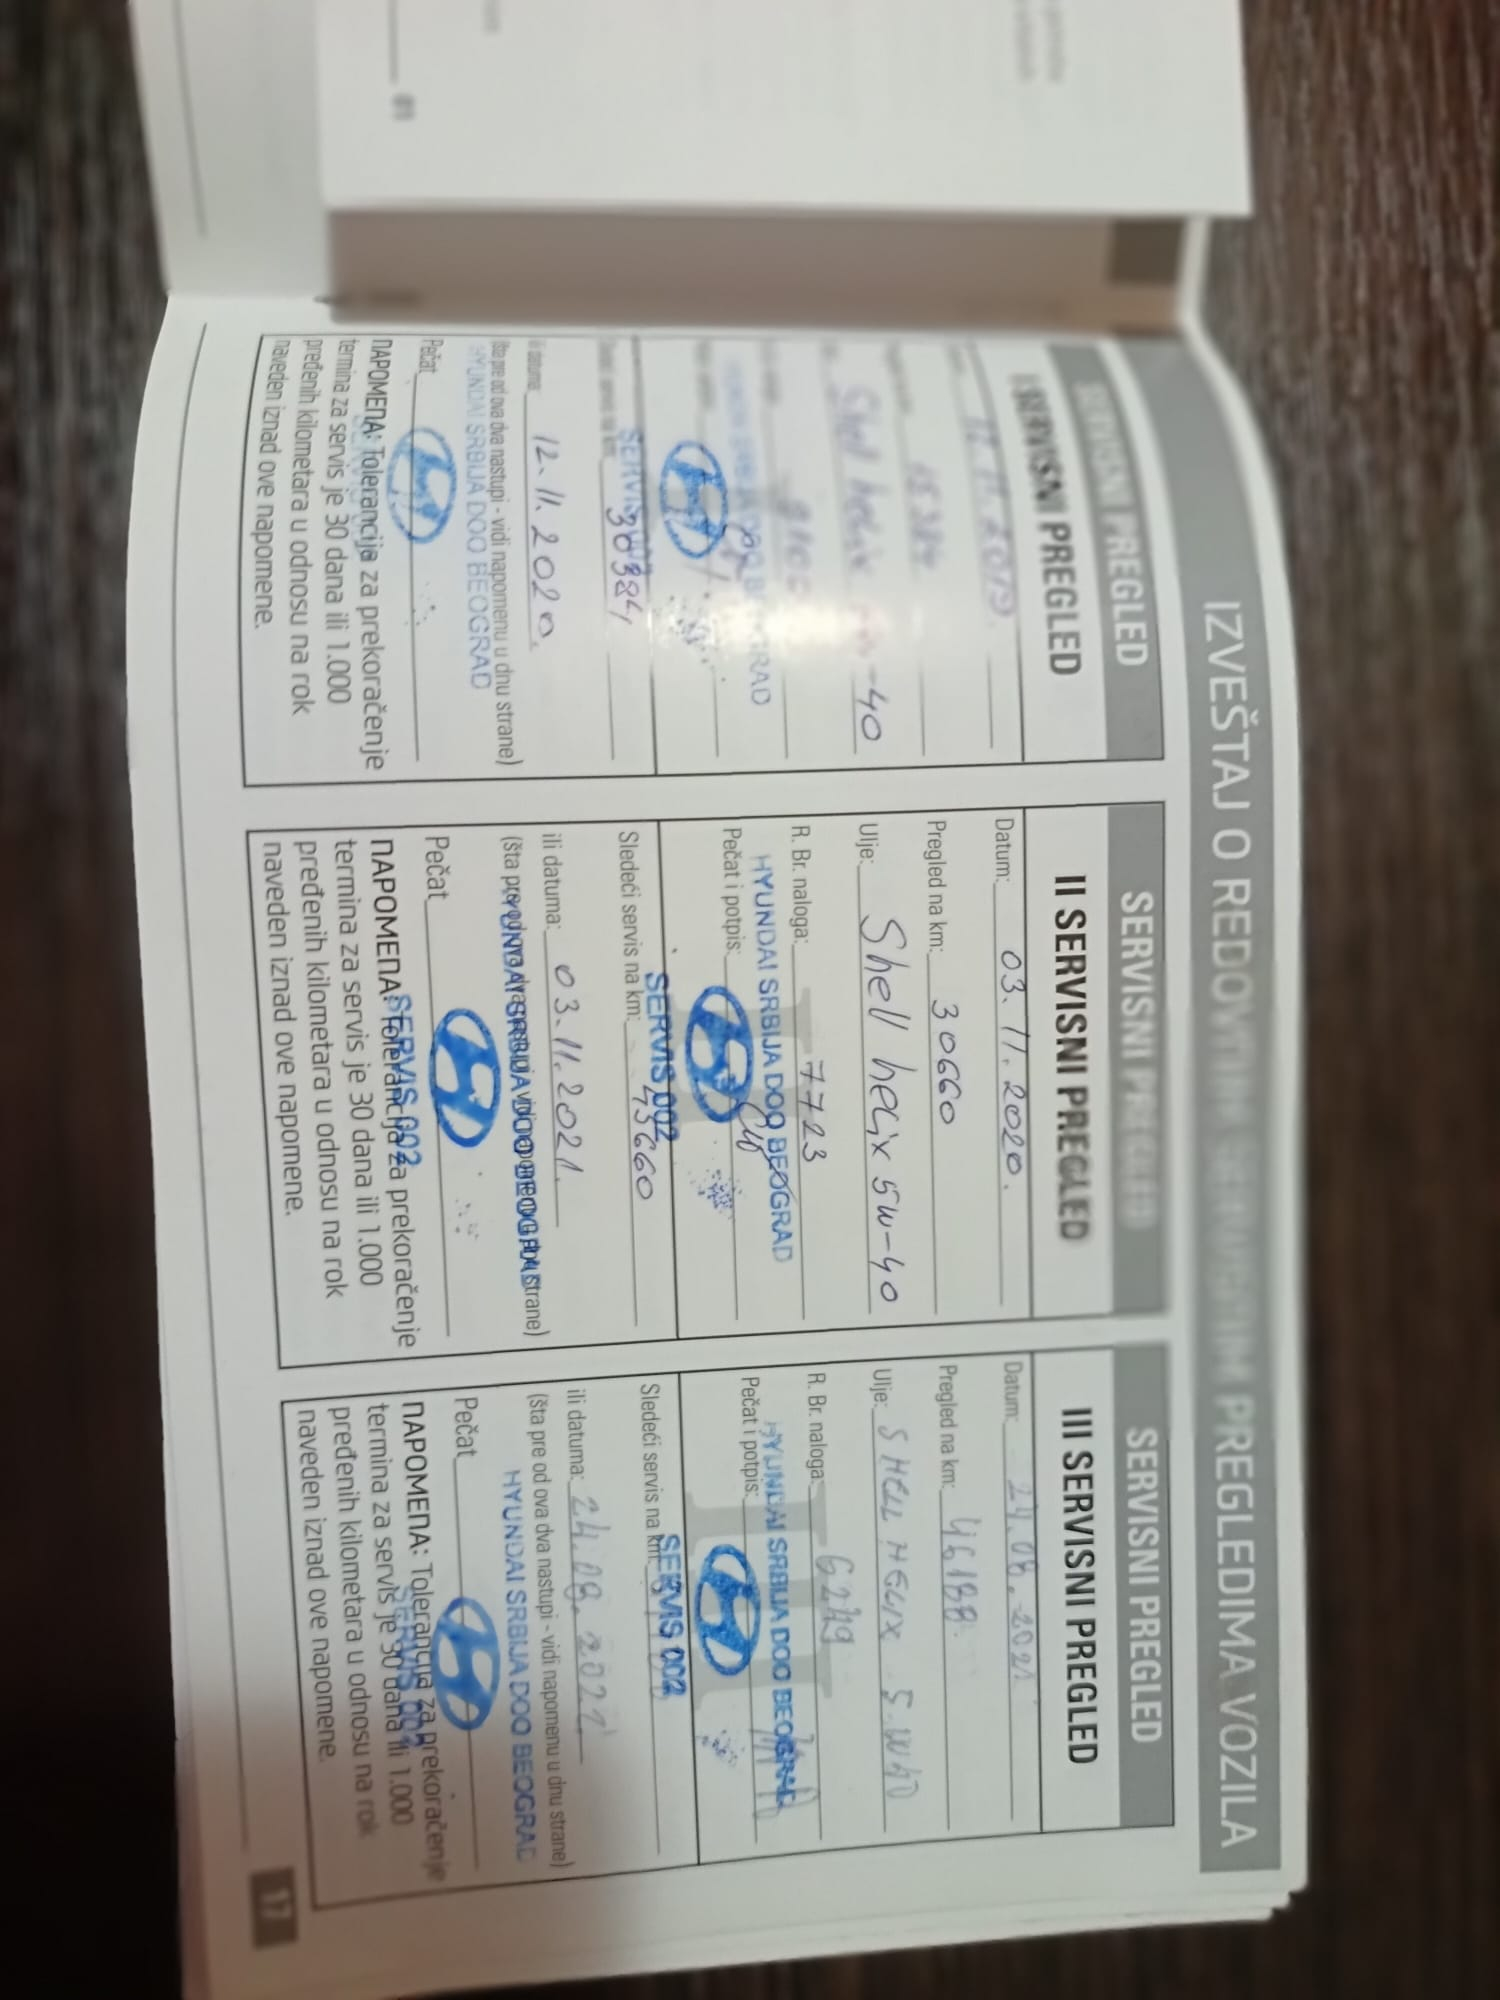 01
IZVEŠTAJ O REDOVNIM SERVISNIM PREGLEDIMA VOZILA
SERVISNI PREGLED
I SERVISNI PREGLED
12.11.2019.
Shell helix -40
HYUNDAI SRBIJA DOO BEOGRAD
SERVIS 002
Sledeći servis na km: 30384
ili datuma: 12.11.2020.
(šta pre od ova dva nastupi - vidi napomenu u dnu strane)
HYUNDAI SRBIJA DOO BEOGRAD
Pečat
NAPOMENA: Tolerancija za prekoračenje
termina za servis je 30 dana ili 1.000
pređenih kilometara u odnosu na rok
naveden iznad ove napomene.
SERVISNI PREGLED
II SERVISNI PREGLED
Datum: 03.11.2020.
Pregled na km: 30660
Ulje: Shell helix 5w-40
R. Br. naloga: 7723
HYUNDAI SRBIJA DOO BEOGRAD
Pečat i potpis:
SERVIS 002
Sledeći servis na km: 45660
ili datuma: 03.11.2021.
(šta pre od ova dva nastupi - vidi napomenu u dnu strane)
HYUNDAI SRBIJA DOO BEOGRAD
Pečat
SERVIS 002
NAPOMENA: Tolerancija za prekoračenje
termina za servis je 30 dana ili 1.000
pređenih kilometara u odnosu na rok
naveden iznad ove napomene.
SERVISNI PREGLED
III SERVISNI PREGLED
Datum: 24.08.2021
Pregled na km: 46188
Ulje: SHELL HELIX 5W40
R. Br. naloga: 6249
HYUNDAI SRBIJA DOO BEOGRAD
Pečat i potpis:
SERVIS 002
Sledeći servis na km:
ili datuma: 24.08.2022.
(šta pre od ova dva nastupi - vidi napomenu u dnu strane)
HYUNDAI SRBIJA DOO BEOGRAD
Pečat
NAPOMENA: Tolerancija za prekoračenje
termina za servis je 30 dana ili 1.000
pređenih kilometara u odnosu na rok
naveden iznad ove napomene.
17